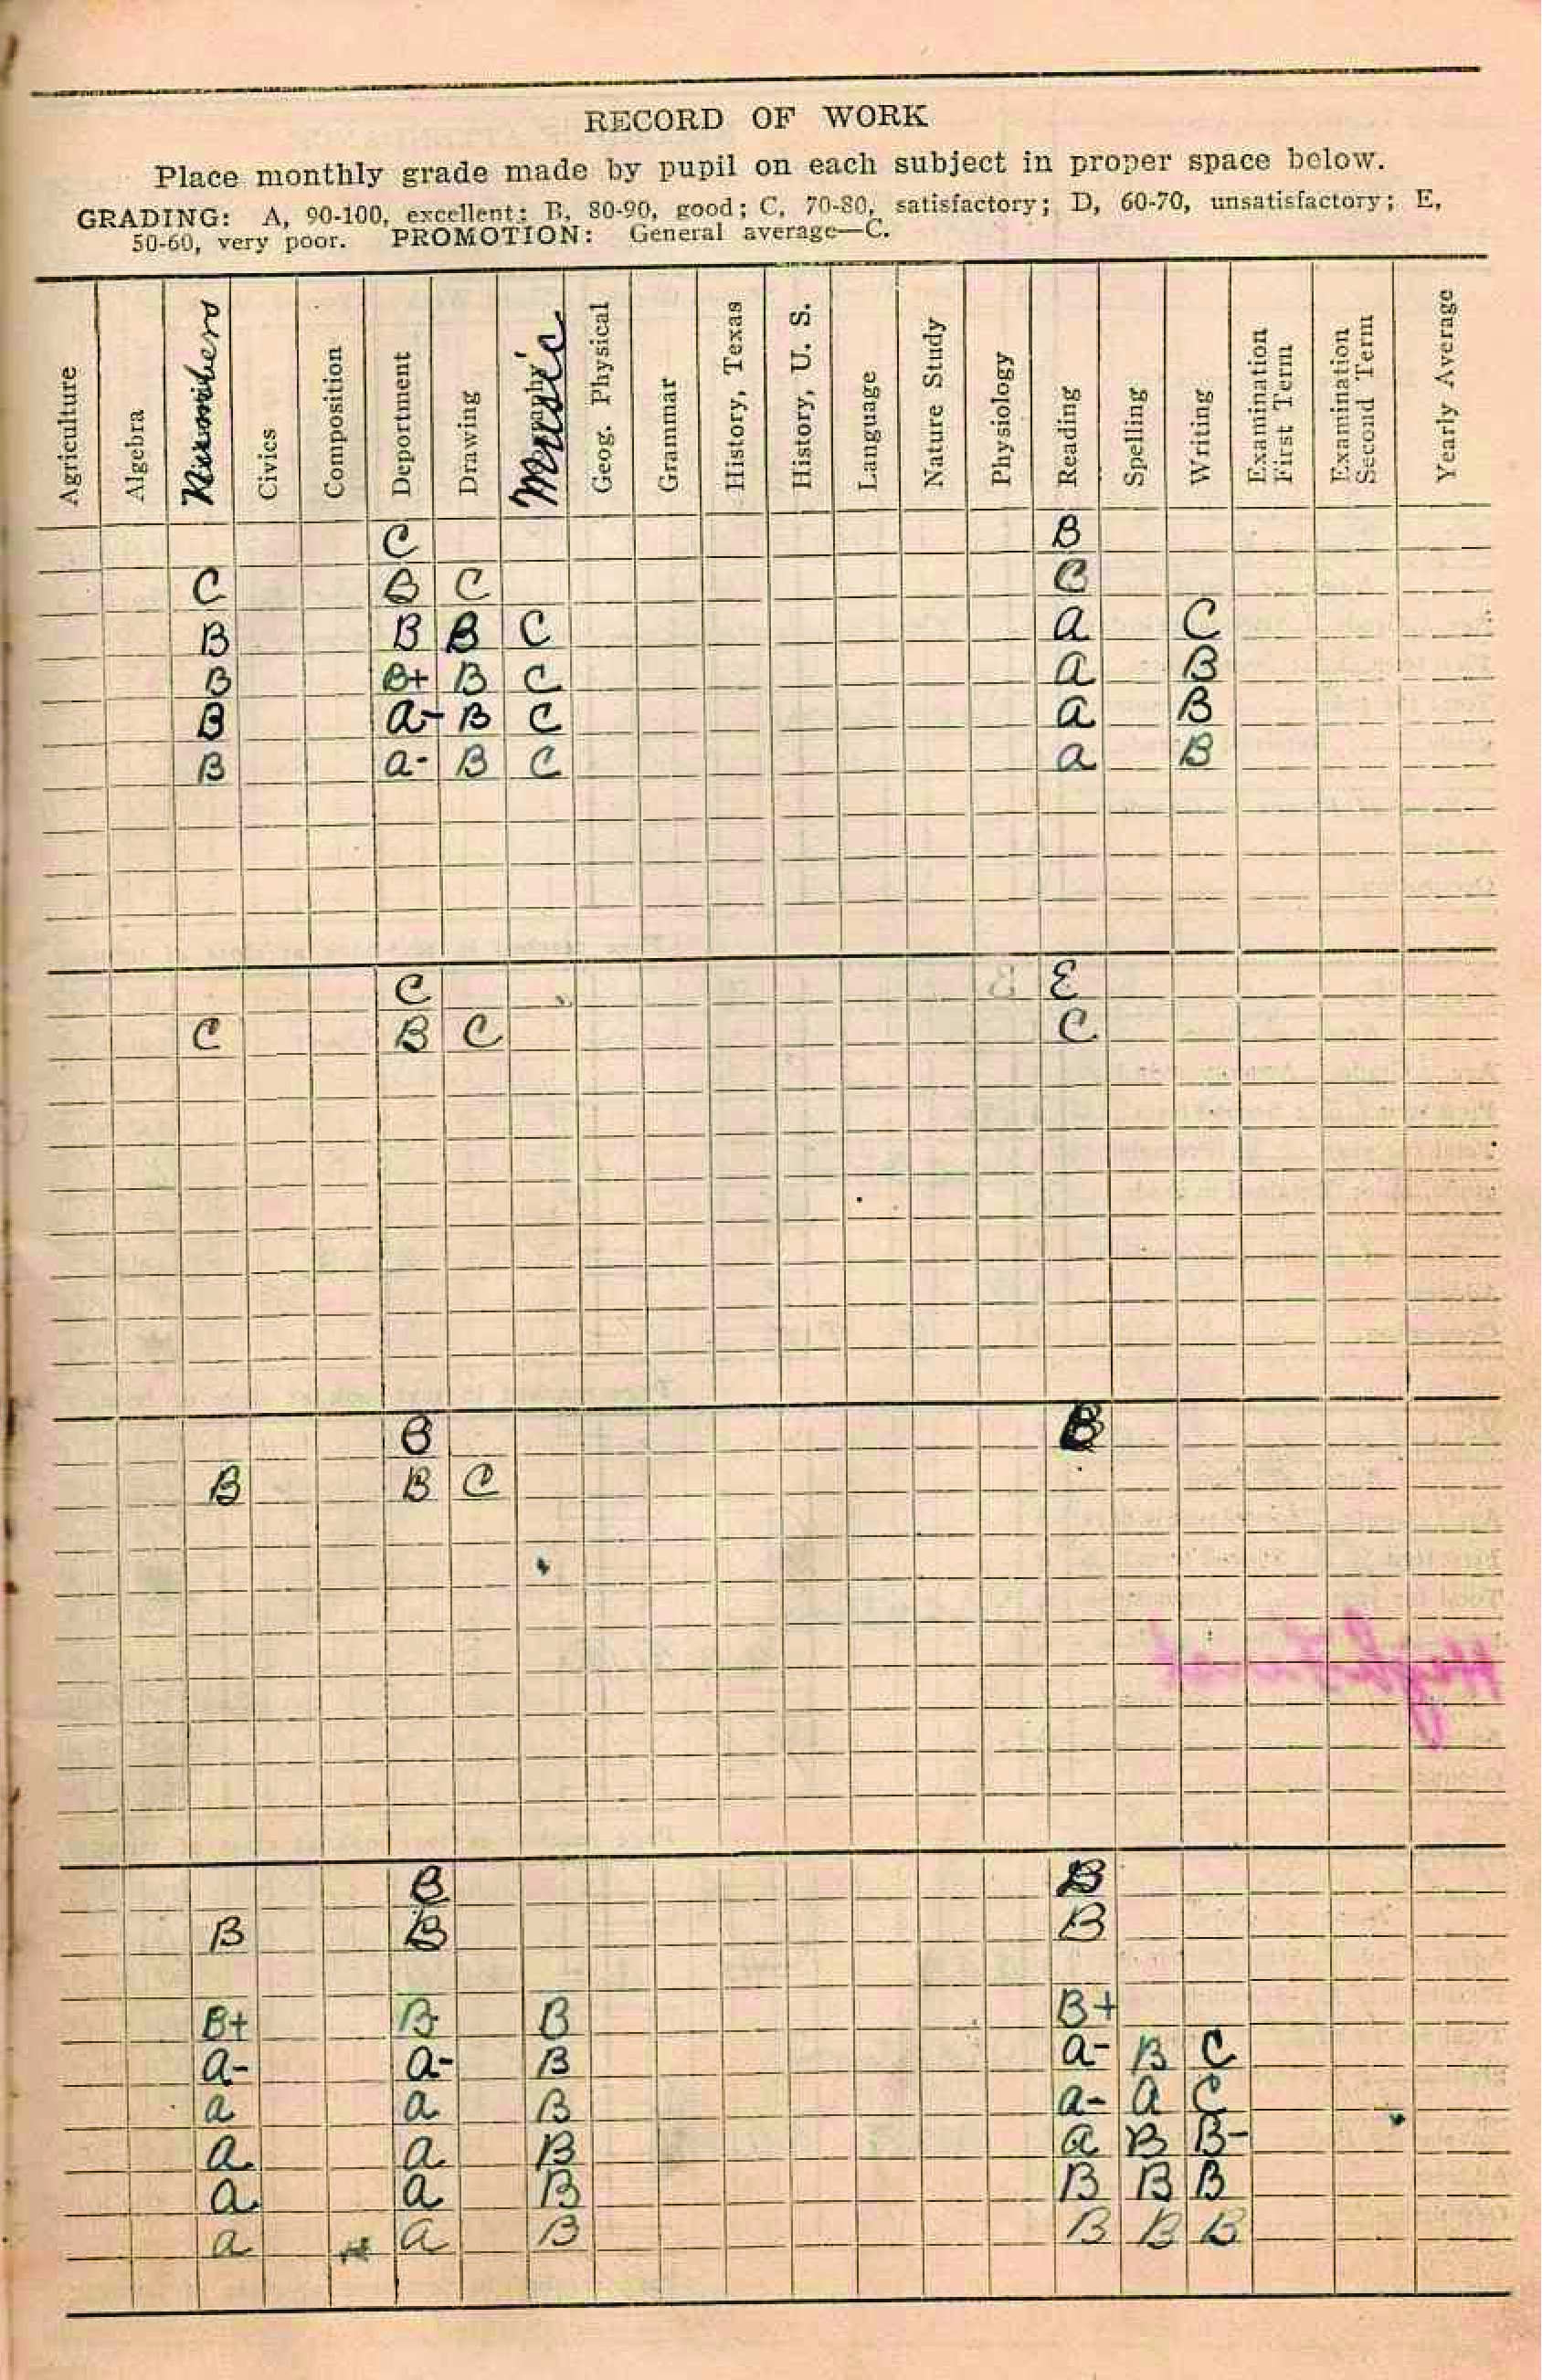 RECORD OF WORK
Place monthly grade made by pupil on each subject in proper space below.
GRADING: A, 90-100, excellent; B, 80-90, good; C, 70-80, satisfactory; D, 60-70, unsatisfactory; E,
50-60, very poor. PROMOTION: General average—C.
Agriculture
Algebra
Numbers
Civics
Composition
Deportment
Drawing
Music
Geog. Physical
Grammar
History, Texas
History, U. S.
Language
Nature Study
Physiology
Reading
Spelling
Writing
Examination
First Term
Examination
Second Term
Yearly Average
C B
C B C C
B B B C a C
B B+ B C a B
B a- B C a B
B a- B C a B
C E
C B C C
B B
B B C
B B
B B B
B+ B B B+
a- a- B a- B C
a a B a- a C
a a B a B B-
a a B B B B
a a B B B B